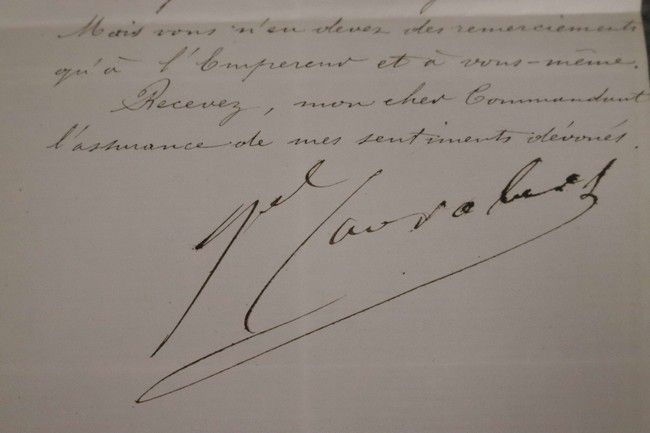 Mais vous n'en devez des remerciements
qu'à l'Empereur et à vous-même.
Recevez, mon cher Commandant
l'assurance de mes sentiments dévoués.
Mal Canrobert